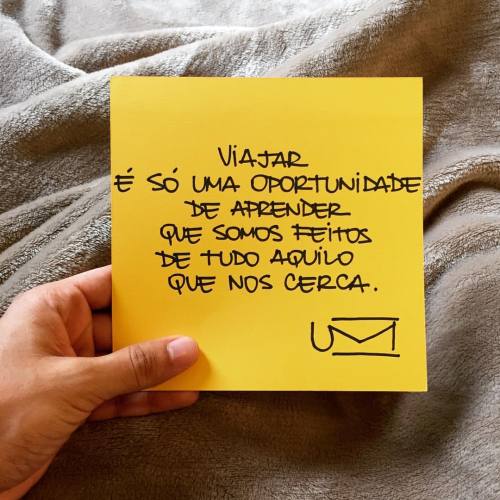 VIAJAR
É SÓ UMA OPORTUNIDADE
DE APRENDER
QUE SOMOS FEITOS
DE TUDO AQUILO
QUE NOS CERCA.